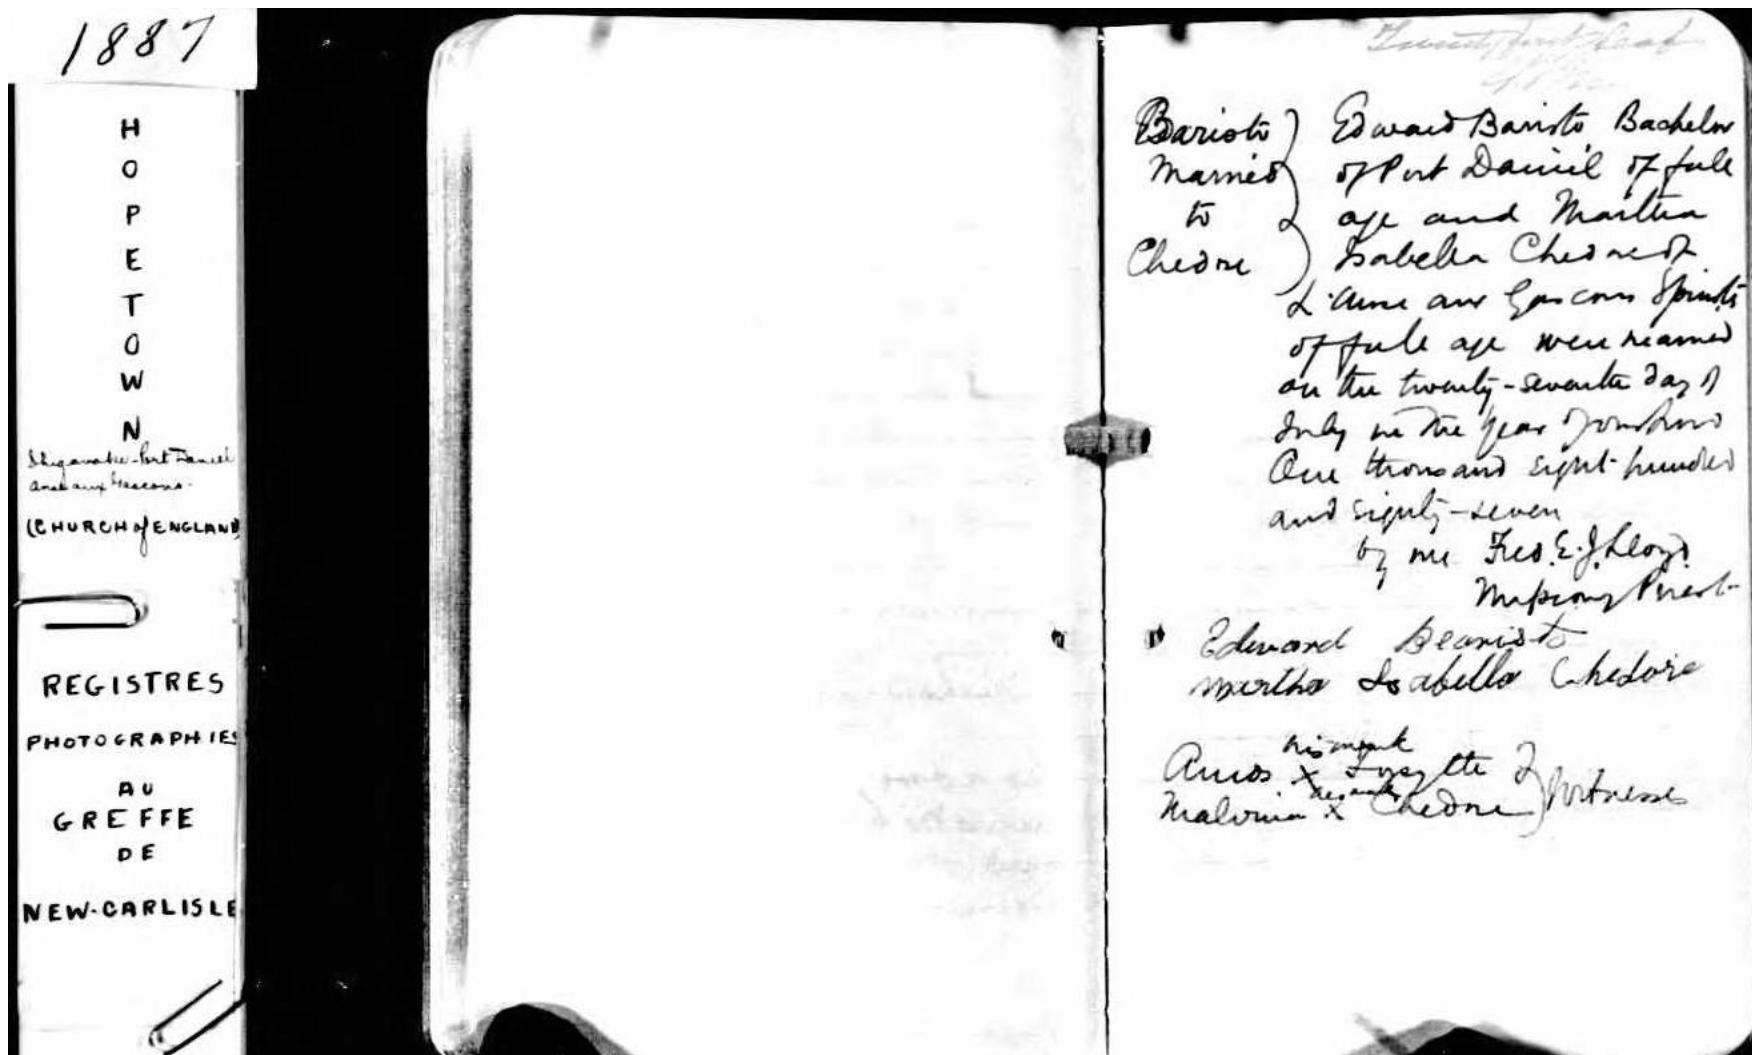 1887
HOPETOWN
Shigawake-Port Daniel
Anse aux Gascons.
(CHURCH of ENGLAND
REGISTRES
PHOTOGRAPHIES
AU
GREFFE
DE
NEW-CARLISLE
Twenty first Leaf
Baristo
Married
to
Chedore
Edward Baristo Bachelor
of Port Daniel of full
age and Martha
Isabella Chedore of
L'Anse aux Gascons Spinster
of full age were married
on the twenty-seventh day of
July in the year of our Lord
One thousand eight hundred
and eighty-seven
by me Fred. E. J. Lloyd.
Missionary Priest
Edward Bearisto
Martha Isabella Chedore
his mark
Amos X Forsythe
her mark
Malvina X Chedore
Witnesses